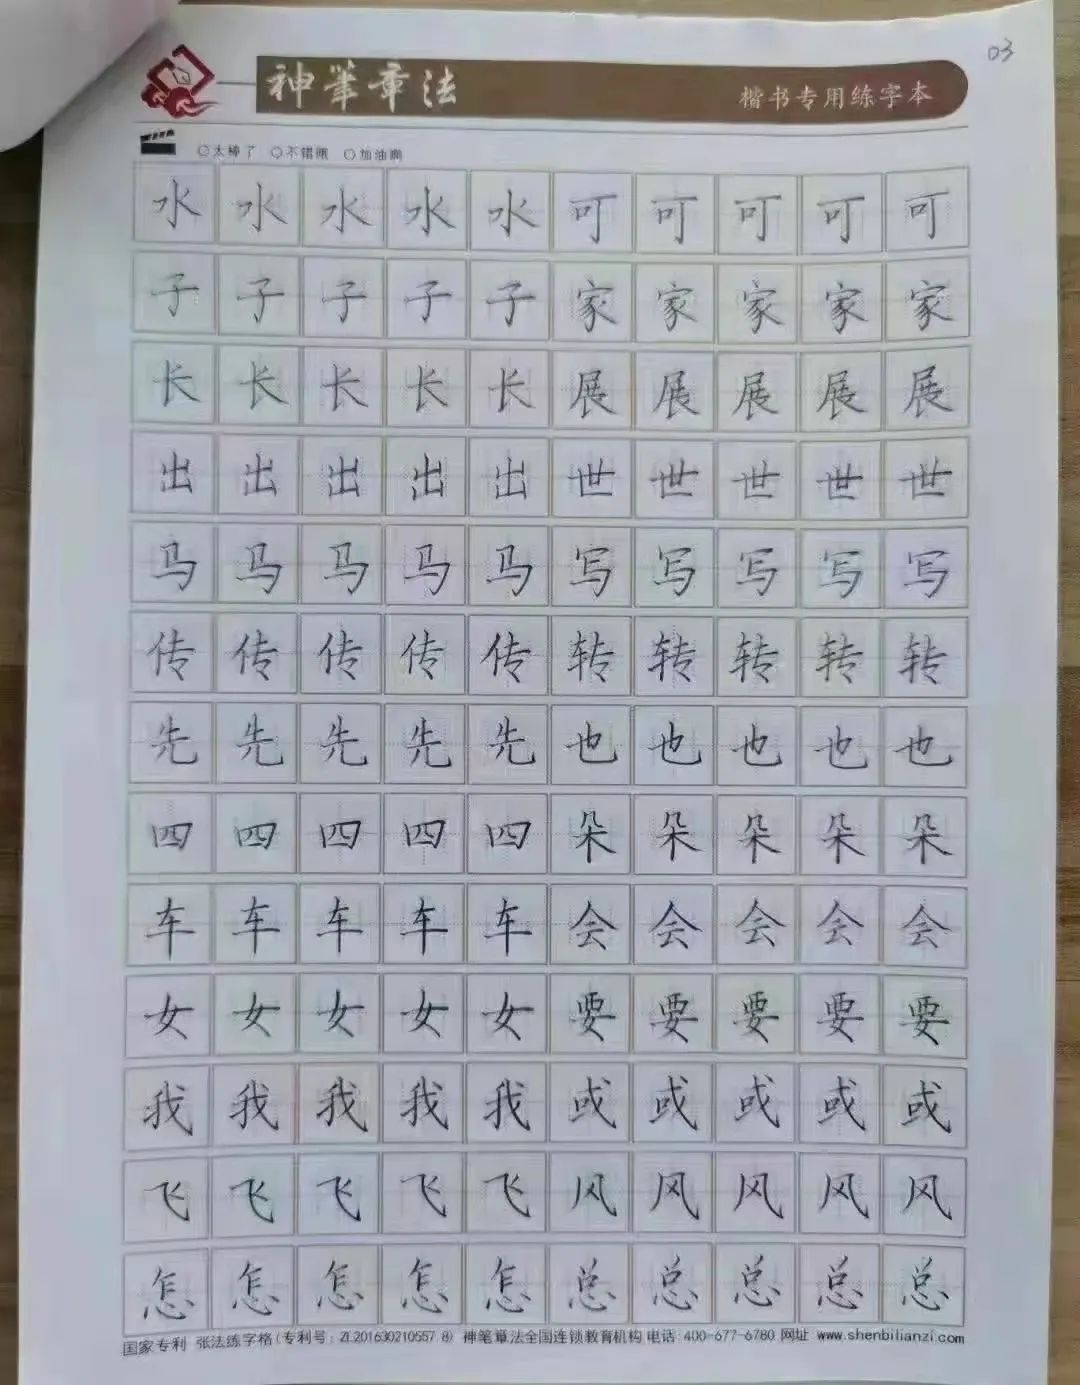 03
神笔章法 楷书专用练字本
太棒了 不错哦 加油啊
水水水水水可可可可可
子子子子子家家家家家
长长长长长展展展展展
出出出出出世世世世世
马马马马马写写写写写
传传传传传转转转转转
先先先先先也也也也也
四四四四四朵朵朵朵朵
车车车车车会会会会会
女女女女女要要要要要
我我我我我或或或或或
飞飞飞飞飞风风风风风
怎怎怎怎怎总总总总总
国家专利 张法练字格(专利号: ZL201630210557 8) 神笔章法全国连锁教育机构 电话 400-677-6780 网址 www.shenbilianzi.com